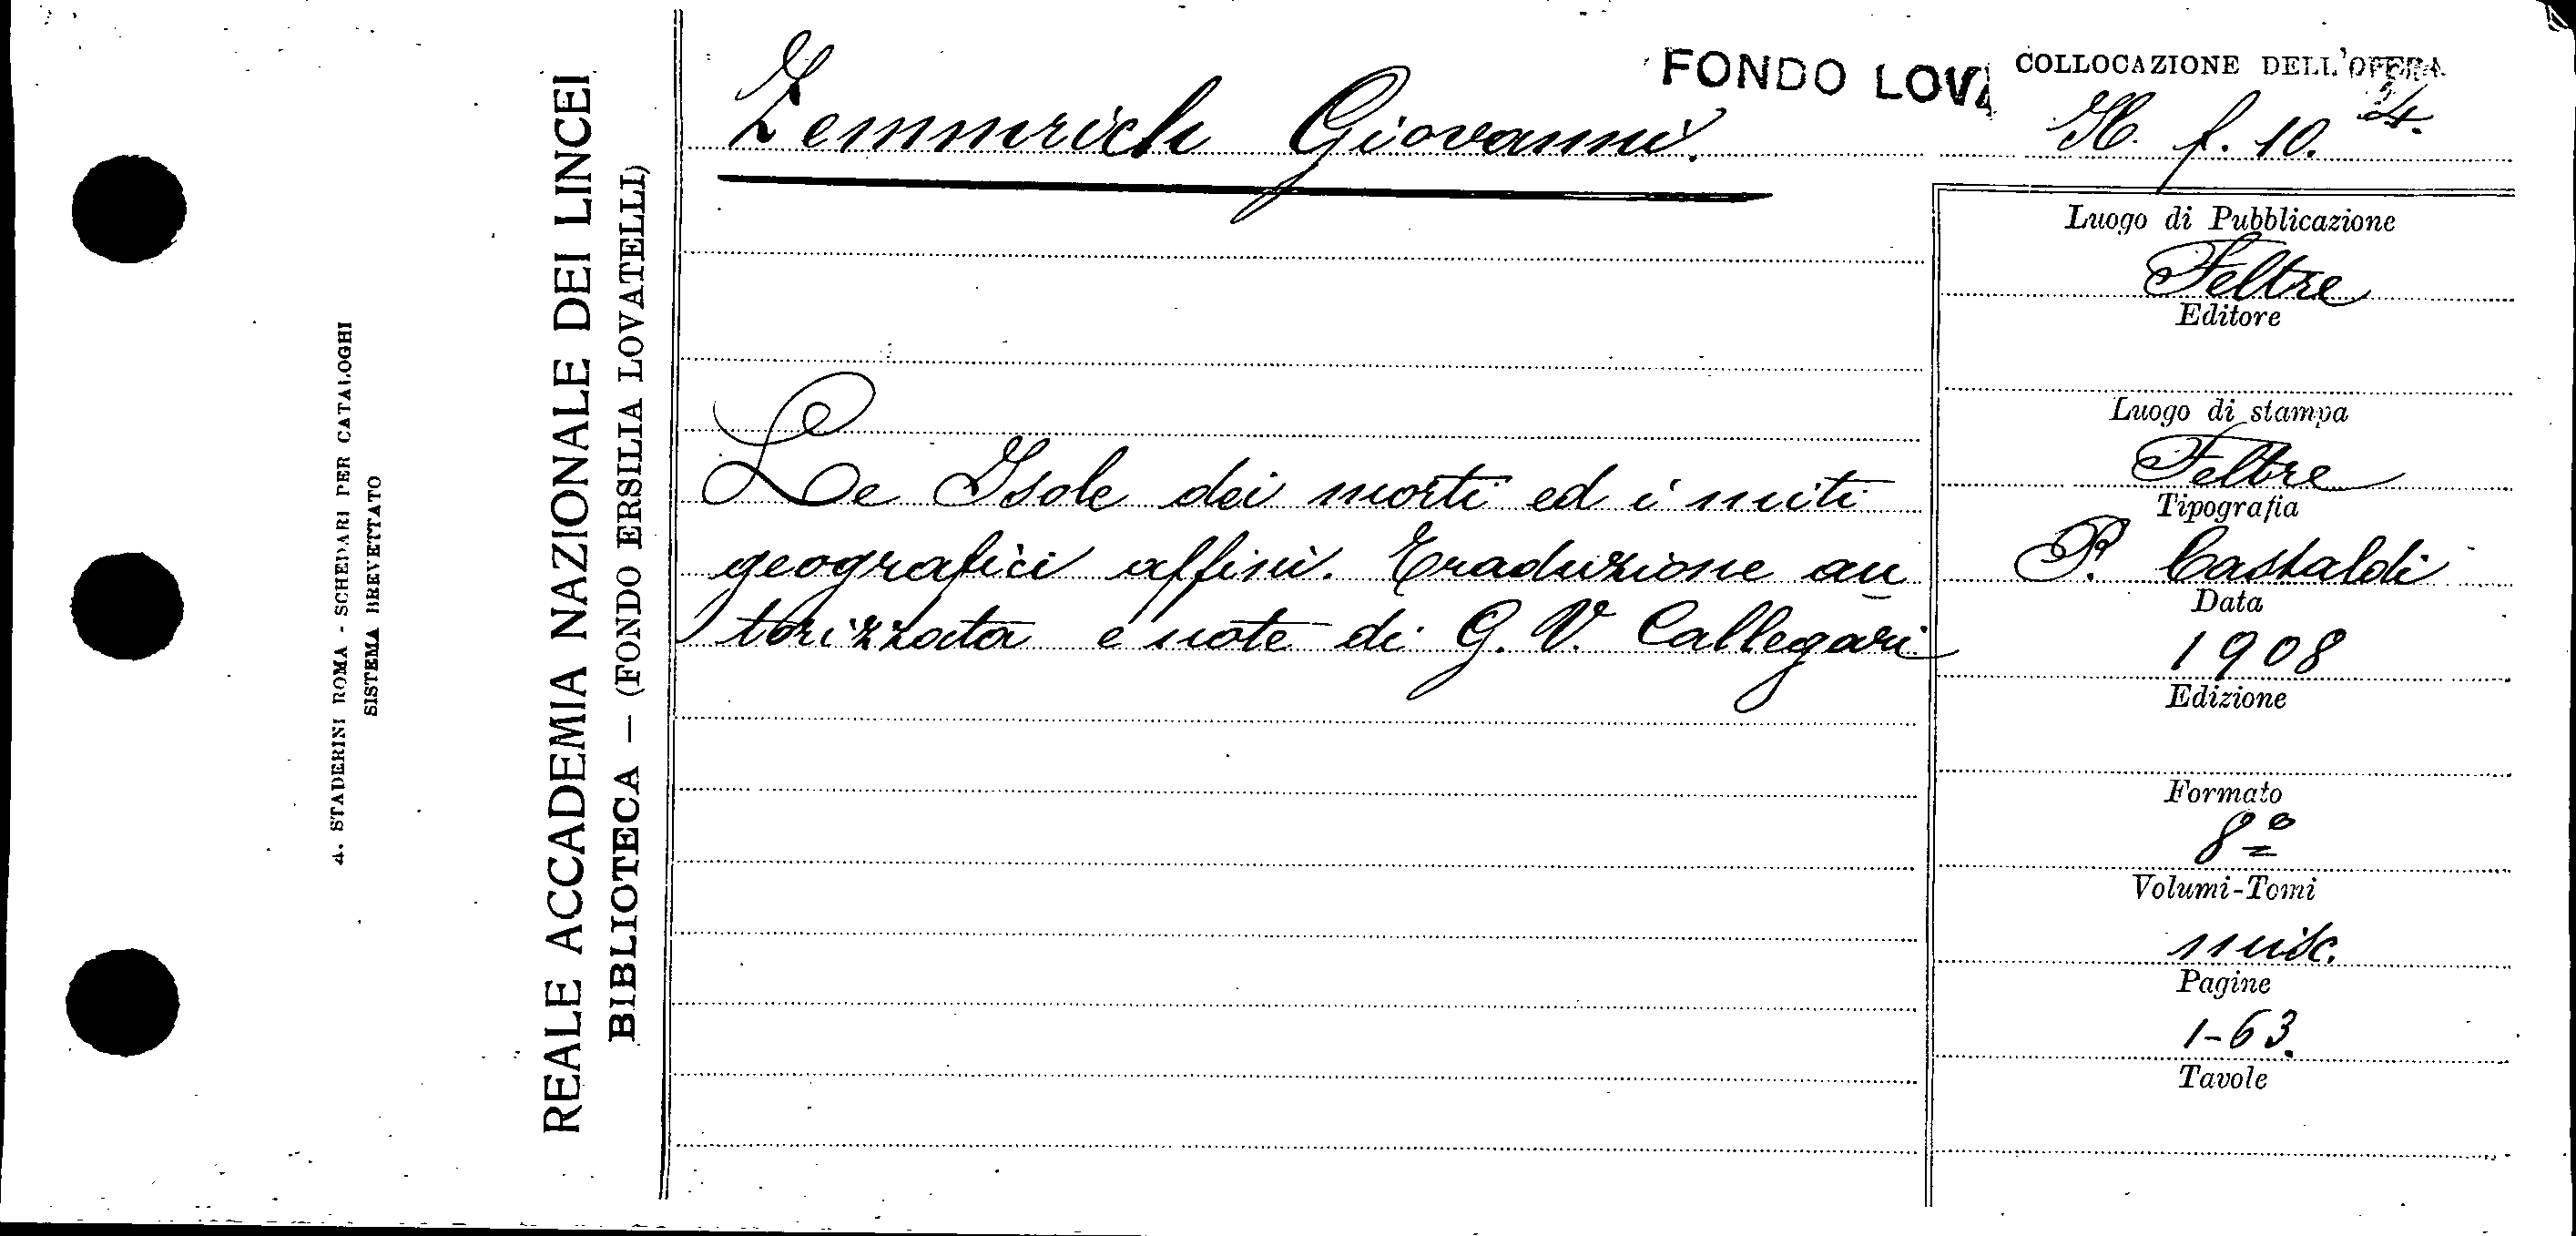 4. STADERINI ROMA - SCHEDARI PER CATALOGHI
SISTEMA BREVETTATO
REALE ACCADEMIA NAZIONALE DEI LINCEI
BIBLIOTECA — (FONDO ERSILIA LOVATELLI)
Zemmrich Giovanni.
FONDO LOVA
COLLOCAZIONE DELL'OPERA
H. f. 10. 24.
Le Isole dei morti ed i miti
geografici affini. Traduzione au
torizzata e note di G. V. Callegari
Luogo di Pubblicazione
Feltre
Editore
Luogo di stampa
Feltre
Tipografia
P. Castaldi
Data
1908
Edizione
Formato
8º
Volumi-Tomi
misc.
Pagine
1-63.
Tavole